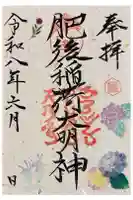 奉拝
肥後稲荷大明神
令和八年六月 日